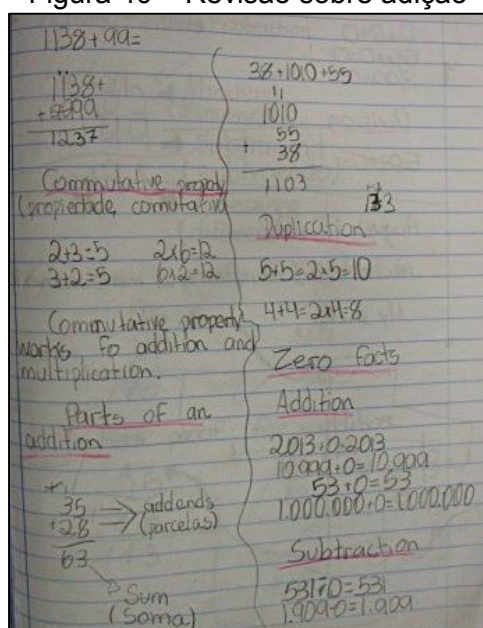 Figura 10 – Revisão sobre adição
1138+99=
1138+
1237
Commutative
(propriedade comutativa
2+3=5 2x6=12
3+2=5 6x2=12
Commutative property
works fo addition and
multiplication.
Parts of an
addition
35 addends
+28 (parcelas)
63
Sum
(Soma)
38+1010+55
11
1010
55
+ 38
1103
Duplication
5+5=2x5=10
4+4=2x4=8
Zero facts
Addition
2013+0=2013
10.999+0=10.999
53+0=53
1.000.000+0=1.000.000
Subtraction
531-0=531
1.909-0=1.909